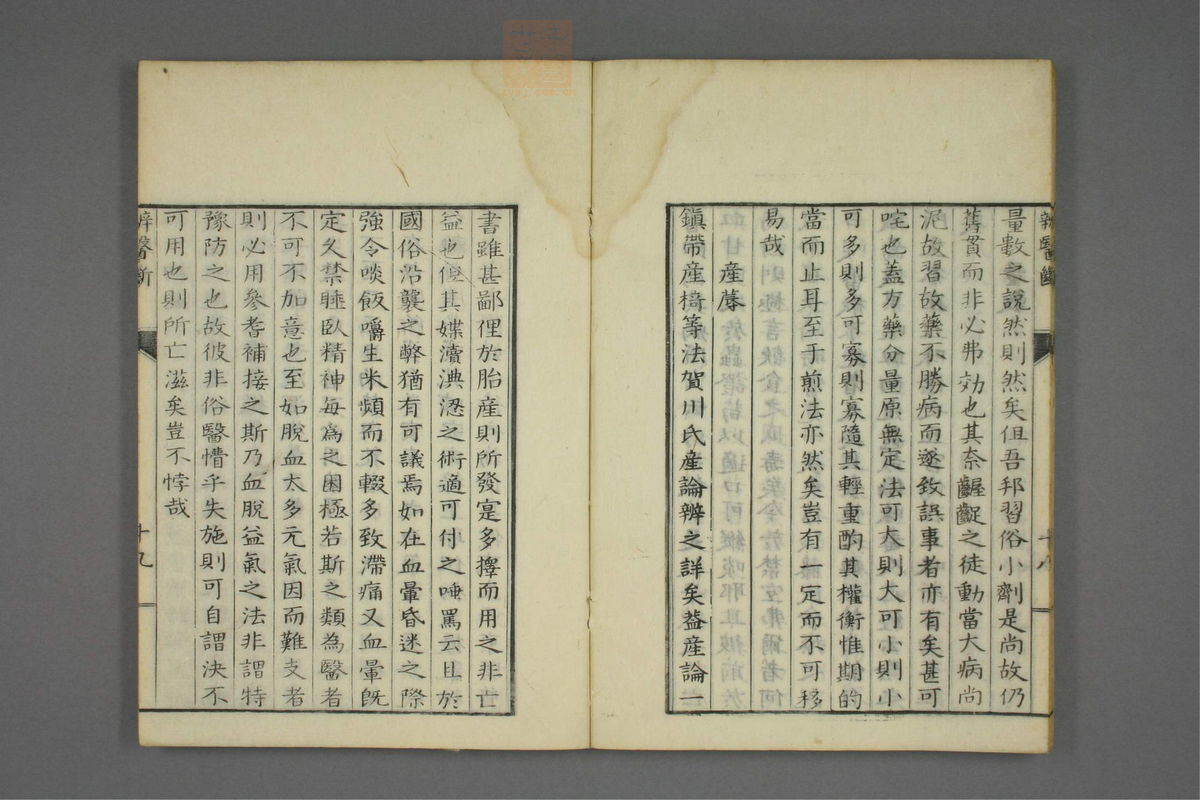 辨醫斷
十八
量數之說然則然矣但吾邦習俗小劑是尚故仍
舊貫而非必弗効也其奈齷齪之徒動當大病尚
泥故習故藥不勝病而遂致誤事者亦有矣甚可
咤也蓋方藥分量原無定法可大則大可小則小
可多則多可寡則寡隨其輕重酌其權衡惟期的
當而止耳至于煎法亦然矣豈有一定而不可移
易哉
產蓐
鎮帶產椅等法賀川氏產論辨之詳矣蓋產論一
書雖甚鄙俚於胎產則所發寔多擇而用之非亡
益也但其媟瀆淟涊之術適可付之唾罵云且於
國俗沿襲之弊猶有可議焉如在血暈昏迷之際
強令啖飯嚼生米頻而不輟多致滯痛又血暈旣
定久禁睡臥精神每為之困極若斯之類為醫者
不可不加意也至如脫血太多元氣因而難支者
則必用參耆補接之斯乃血脫益氣之法非謂特
豫防之也故彼非俗醫懵乎失施則可自謂決不
可用也則所亡滋矣豈不悖哉
辨醫斷
十九